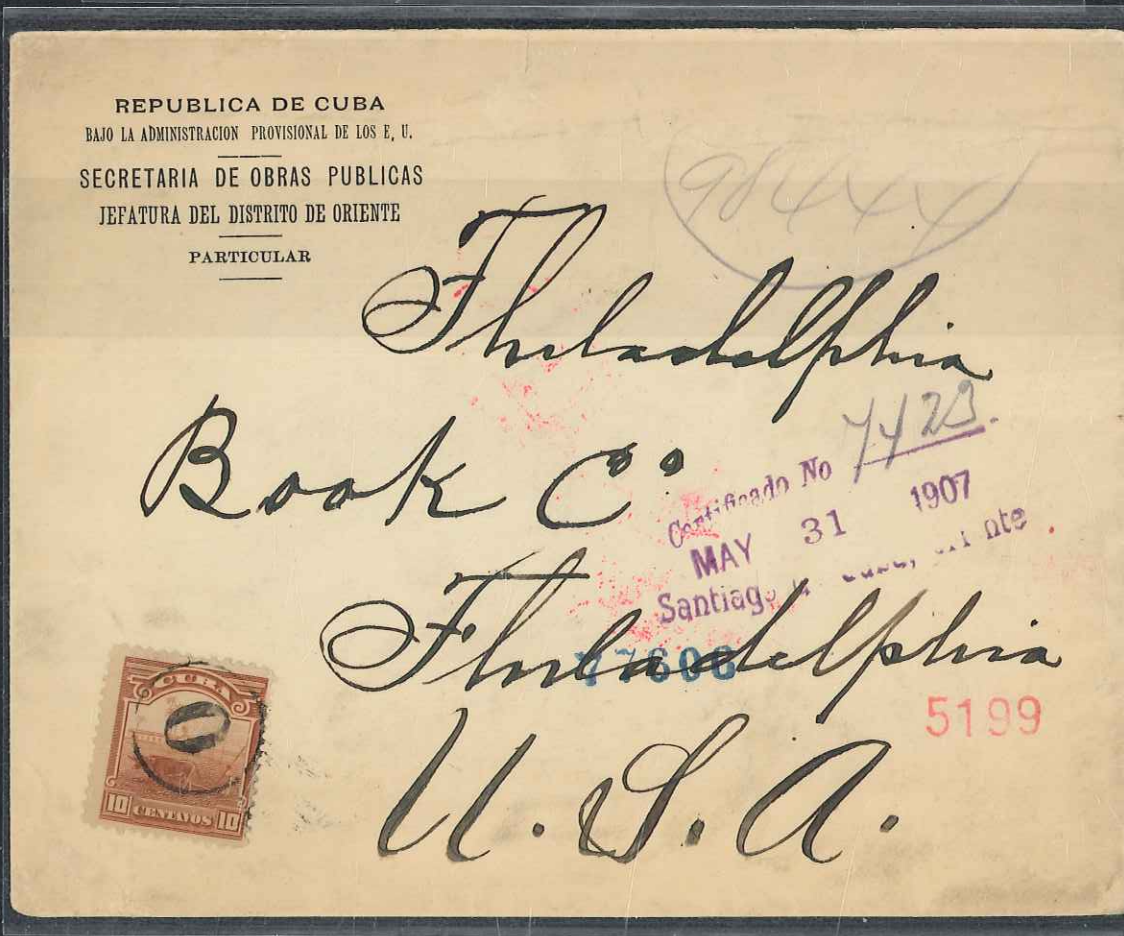 REPUBLICA DE CUBA
BAJO LA ADMINISTRACION PROVISIONAL DE LOS E. U.
SECRETARIA DE OBRAS PUBLICAS
JEFATURA DEL DISTRITO DE ORIENTE
PARTICULAR
98444
Philadelphia
Book Co
Certificado No 7423.
MAY 31 1907
Santiago
Philadelphia
77606
5199
U. S. A.
CUBA
O
10 CENTAVOS 10